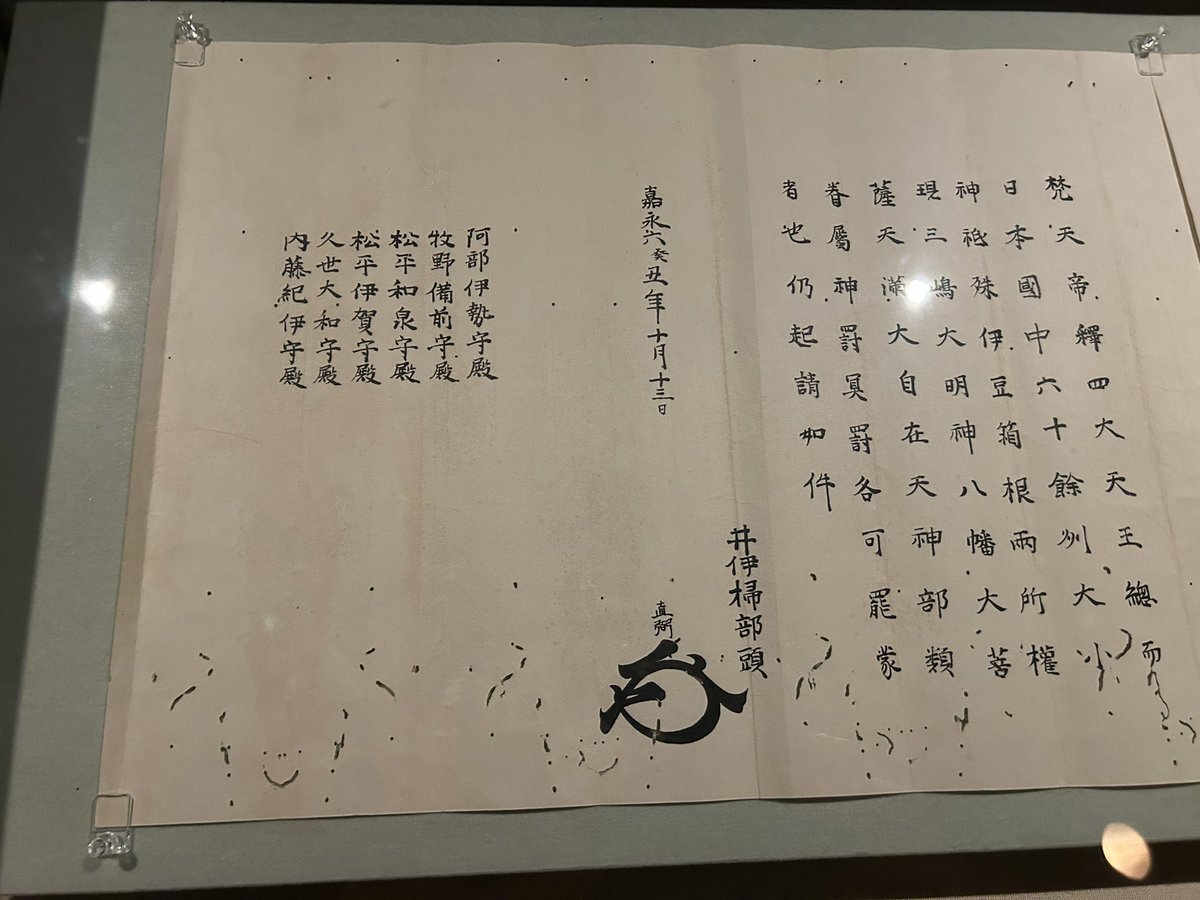 梵天帝釋四大天王總而
日本國中六十餘州大小
神祇殊伊豆箱根兩所權
現三嶋大明神八幡大菩
薩天滿大自在天神部類
眷屬神罸冥罸各可罷蒙
者也仍起請如件
井伊掃部頭
直弼
嘉永六癸丑年十月十三日
阿部伊勢守殿
牧野備前守殿
松平和泉守殿
松平伊賀守殿
久世大和守殿
内藤紀伊守殿